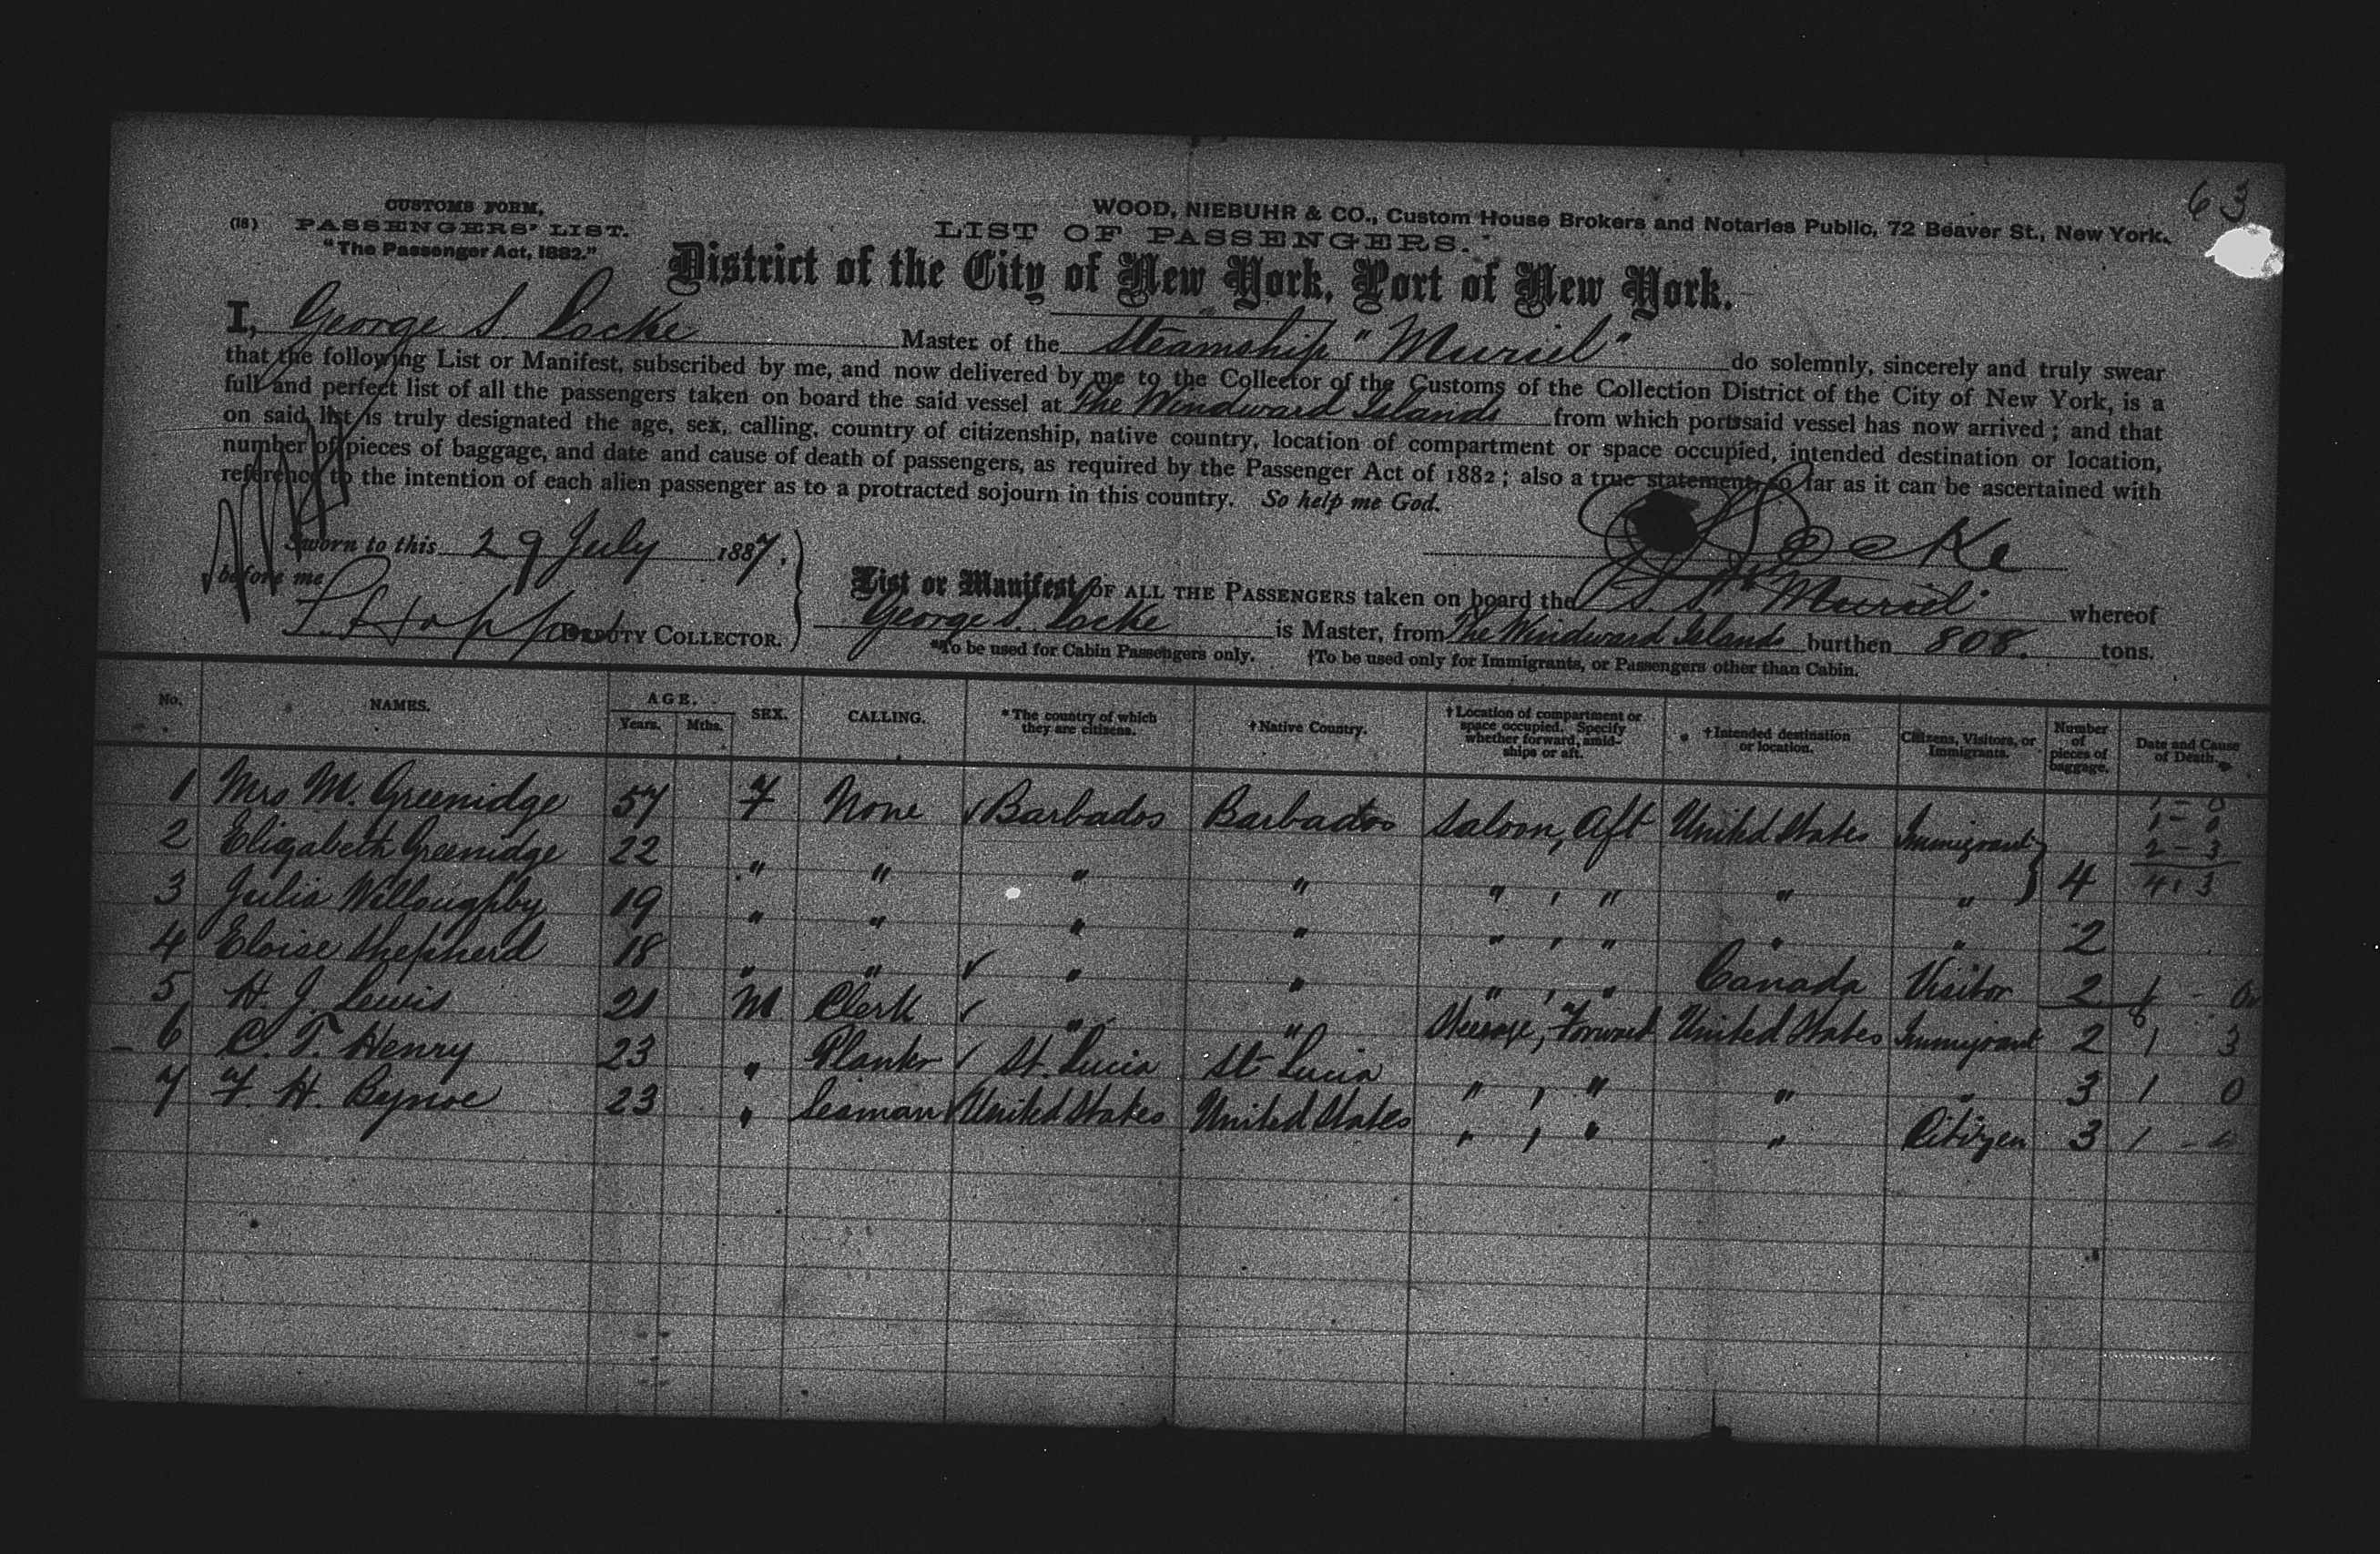 63
CUSTOMS FORM,
WOOD, NIEBUHR & CO., Custom House Brokers and Notaries Public, 72 Beaver St., New York.
(18) PASSENGERS' LIST.
LIST OF PASSENGERS.
"The Passenger Act, 1882."
District of the City of New York, Port of New York.
I, George S. Locke Master of the Steamship "Muriel" do solemnly, sincerely and truly swear
that the following List or Manifest, subscribed by me, and now delivered by me to the Collector of the Customs of the Collection District of the City of New York, is a
full and perfect list of all the passengers taken on board the said vessel at The Windward Islands from which ports said vessel has now arrived; and that
on said list is truly designated the age, sex, calling, country of citizenship, native country, location of compartment or space occupied, intended destination or location,
number of pieces of baggage, and date and cause of death of passengers, as required by the Passenger Act of 1882; also a true statement, so far as it can be ascertained with
reference to the intention of each alien passenger as to a protracted sojourn in this country. So help me God.
Sworn to this 29 July 1887.
Locke
before me
DEPUTY COLLECTOR.
List or Manifest OF ALL THE PASSENGERS taken on board the S. S. "Muriel" whereof
George S. Locke is Master, from The Windward Islands burthen 808. tons.
*To be used for Cabin Passengers only. †To be used only for Immigrants, or Passengers other than Cabin.
No. NAMES. AGE. Years. Mths. SEX. CALLING. *The country of which they are citizens. †Native Country. †Location of compartment or space occupied. Specify whether forward, amidships or aft. †Intended destination or location. Citizens, Visitors, or Immigrants. Number of pieces of baggage. Date and Cause of Death.
1 Mrs M. Greenidge 57 F None Barbados Barbados Saloon, Aft United States Immigrant
2 Elizabeth Greenidge 22 " " " " " , " " " 4
3 Julia Willoughby 19 " " " " " , " " " 2
4 Eloise Shepherd 18 " " " " " , " Canada Visitor 2
5 H. J. Lewis 21 M Clerk " " Steerage, Forward United States Immigrant 2 1 3
6 C. T. Henry 23 " Planter St. Lucia St Lucia " , " " " 3 1 0
7 F. H. Bynoe 23 " Seaman United States United States " , " " Citizen 3 1